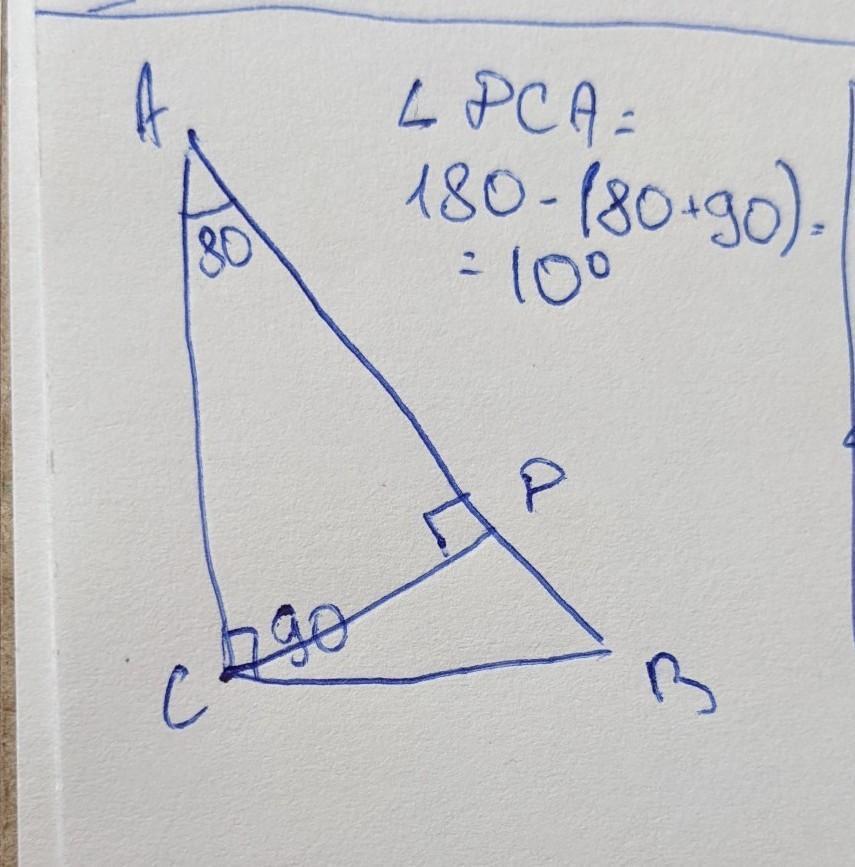 A
∠ PCA =
180 - (80 + 90) =
= 10°
80
P
90
C
B